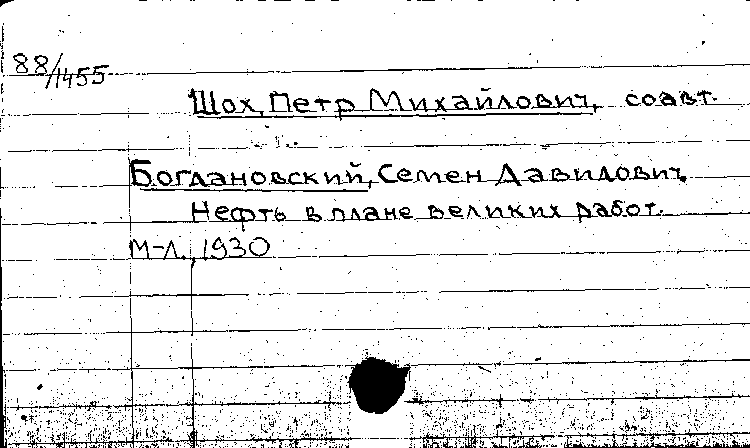 88/1455
Шох, Петр Михайлович, соавт.
Богдановский, Семен Давидович.
Нефть в плане великих работ.
М-Л., 1930